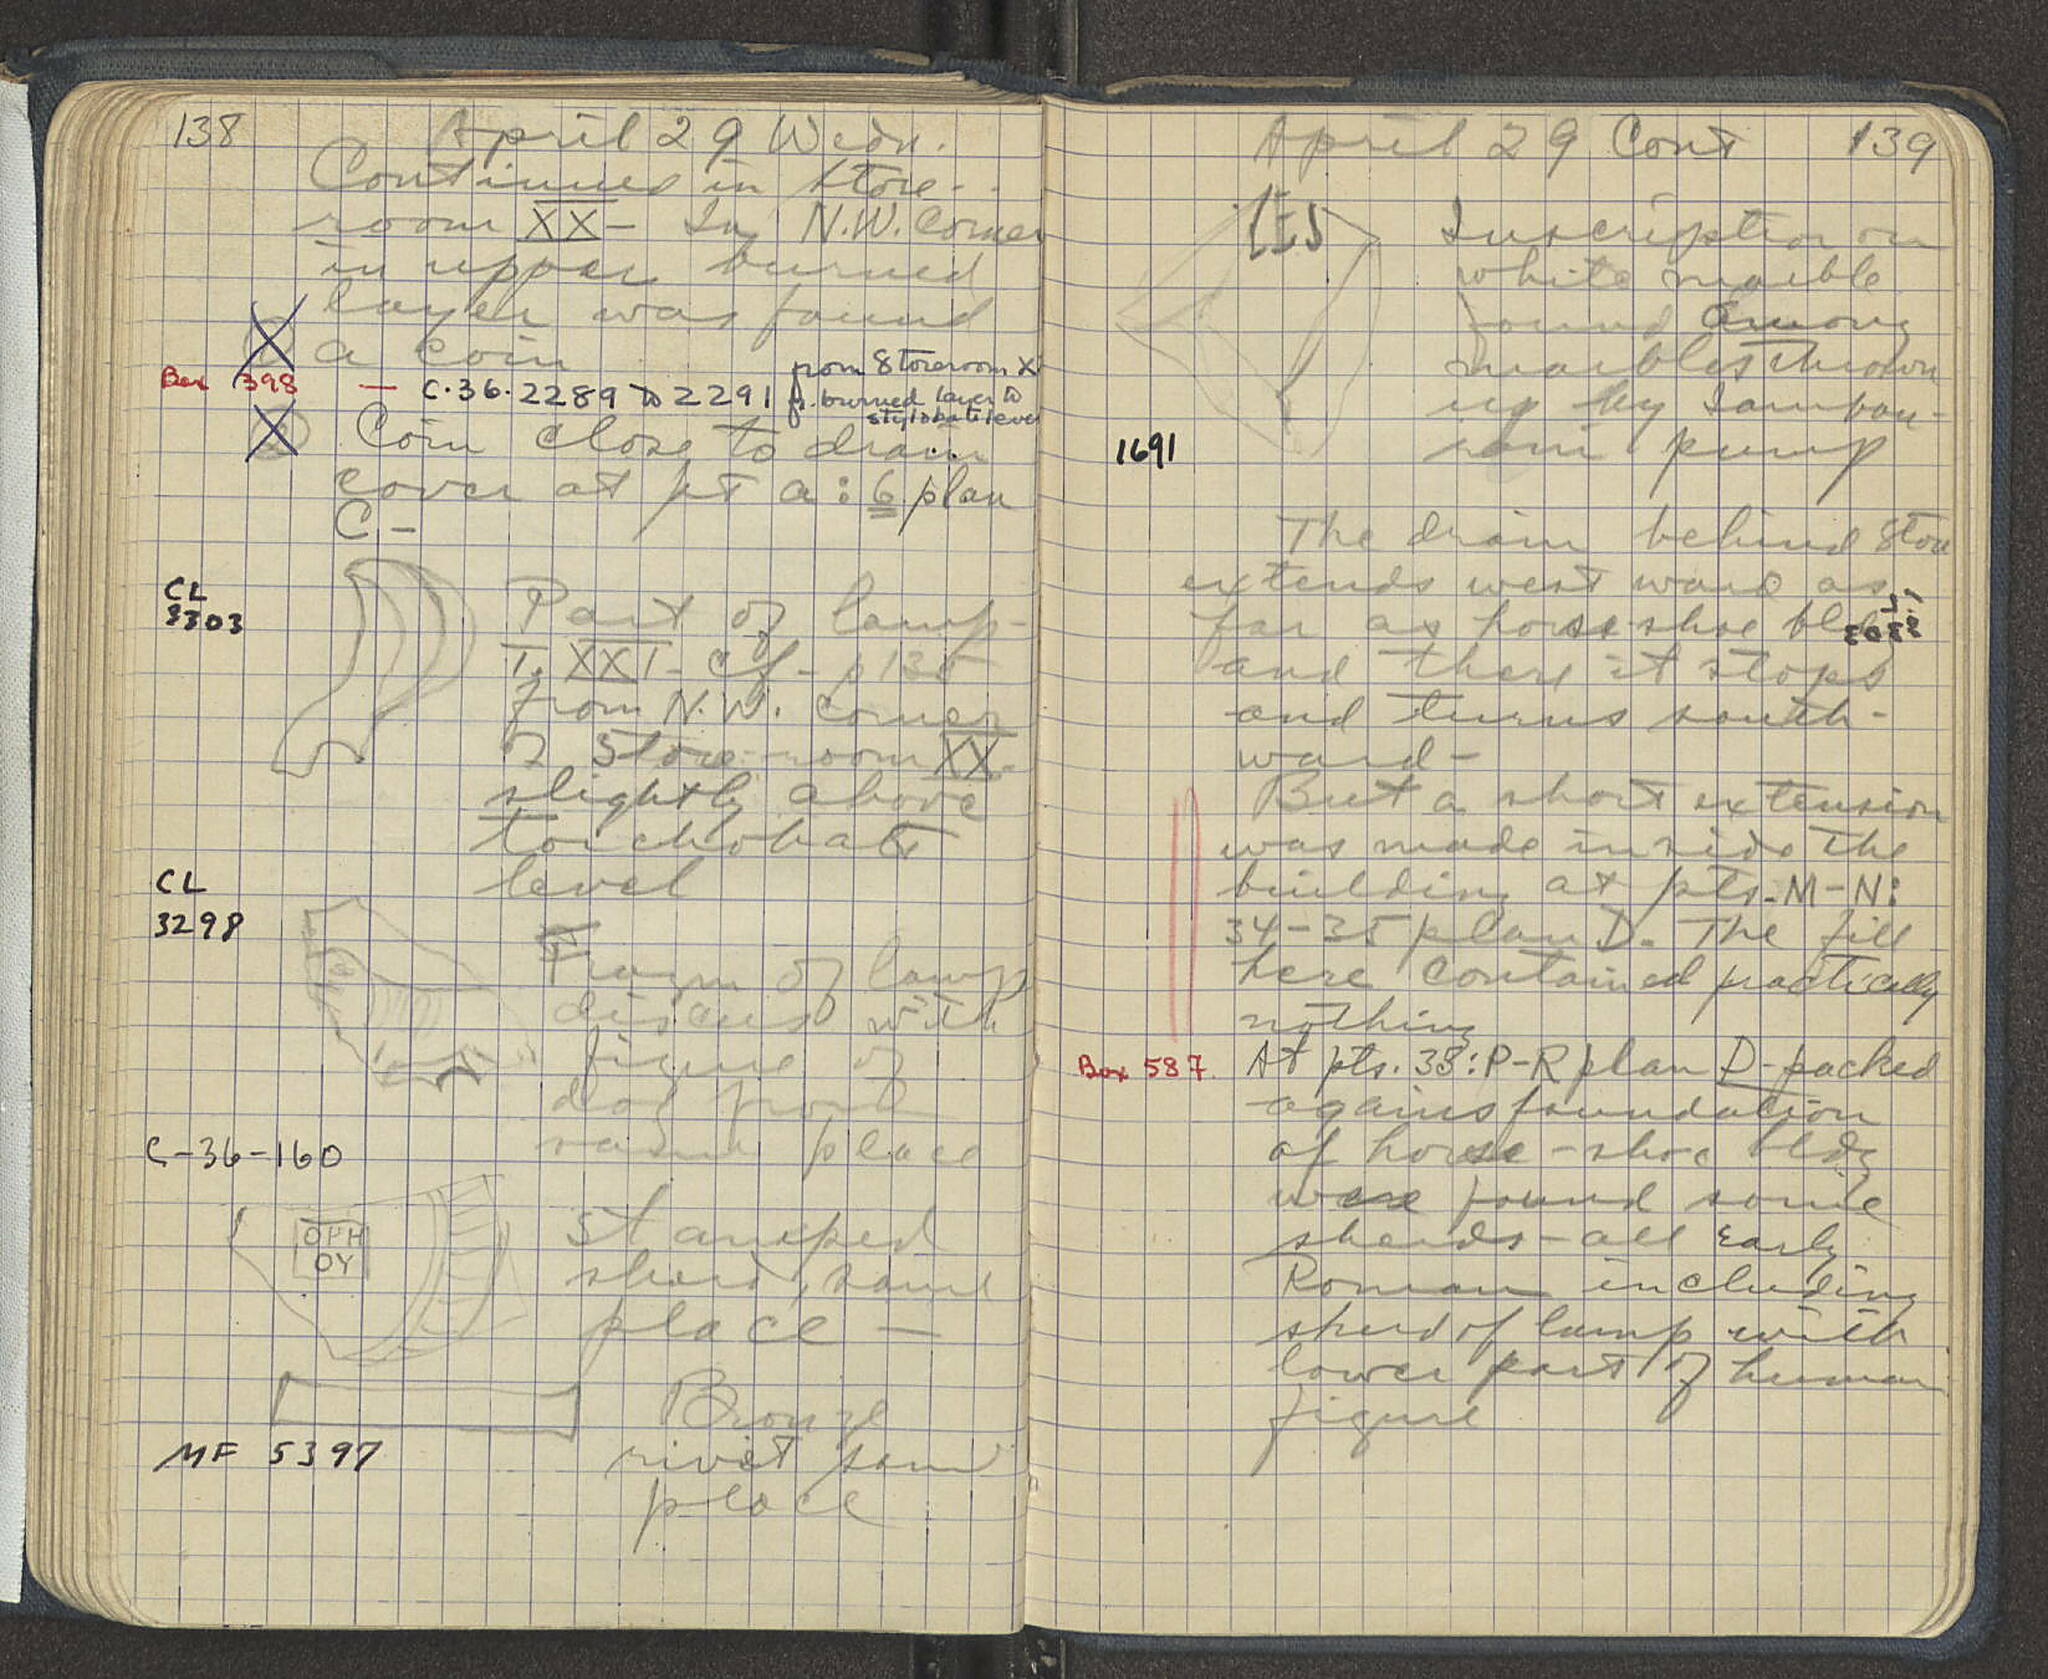 138 April 29 Wedn.
Continued in store-
room XX - In N.W. Corner
in upper burned
layer was found
a coin
Box 398 — C.36.2289 to 2291 from Storeroom X
fr. burned layer to
stylobate level
2 Coin close to drain
cover at pt a:6 plan
C -
CL
3303
Part of lamp -
T. XXI - cf - p 135
from N.W. corner
of Store-room XX -
slightly above
toichobate
level
CL
3298
Fragm of lamp
discus with
figure of
dog from
same place
C-36-160
OPH
OY
Stamped
sherd, same
place —
Bronze
rivet same
place
MF 5397
April 29 Cont 139
Inscription on
white marble
found among
marbles thrown
up by
pump
1691
The drain behind Stoa
extends west ward as
far as horse-shoe bldg
and there it stops
and turns south-
ward -
But a short extension
was made inside the
building at pts. M-N:
34-35 plan D. The fill
here contained practically
nothing
Box 587. At pts. 33:P-R plan D - packed
agains foundation
of horse-shoe bldg
were found some
sherds - all Early
Roman including
sherd of lamp with
lower part of human
figure